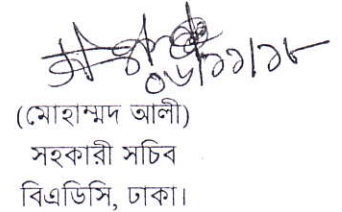 ০৬/১১/১৮
(মোহাম্মদ আলী)
সহকারী সচিব
বিএডিসি, ঢাকা।